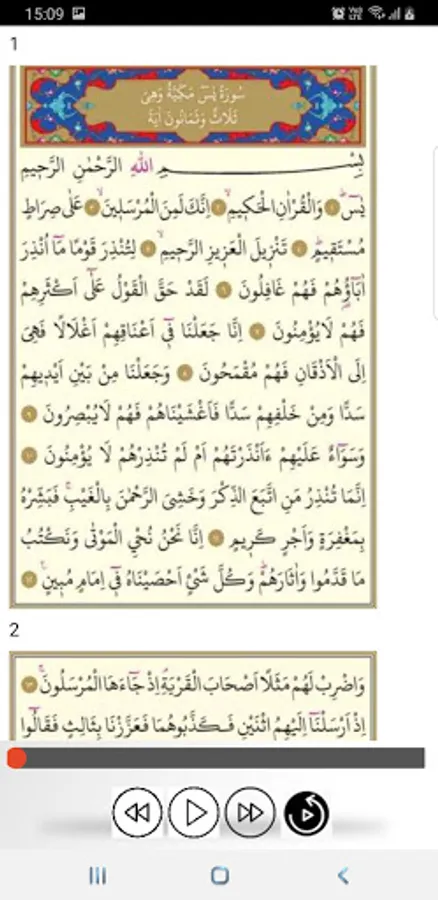 15:09
1
سُورَةُ يٰسٓ مَكِّيَّةٌ وَهِىَ
ثَلَاثٌ وَثَمَانُونَ اٰيَةً
بِسْمِ اللّٰهِ الرَّحْمٰنِ الرَّحِيمِ
يٰسٓۜ ﴿١﴾ وَالْقُرْاٰنِ الْحَكِيمِۙ ﴿٢﴾ اِنَّكَ لَمِنَ الْمُرْسَلِينَۙ ﴿٣﴾ عَلٰى صِرَاطٍ
مُسْتَقِيمٍۜ ﴿٤﴾ تَنْزِيلَ الْعَزِيزِ الرَّحِيمِۙ ﴿٥﴾ لِتُنْذِرَ قَوْمًا مَٓا اُنْذِرَ
اٰبَٓاؤُ۬هُمْ فَهُمْ غَافِلُونَ ﴿٦﴾ لَقَدْ حَقَّ الْقَوْلُ عَلٰٓى اَكْثَرِهِمْ
فَهُمْ لَايُؤْمِنُونَ ﴿٧﴾ اِنَّا جَعَلْنَا فِٓى اَعْنَاقِهِمْ اَغْلَالًا فَهِىَ
اِلَى الْاَذْقَانِ فَهُمْ مُقْمَحُونَ ﴿٨﴾ وَجَعَلْنَا مِنْ بَيْنِ اَيْدِيهِمْ
سَدًّا وَمِنْ خَلْفِهِمْ سَدًّا فَاَغْشَيْنَاهُمْ فَهُمْ لَايُبْصِرُونَ ﴿٩﴾
وَسَوَٓاءٌ عَلَيْهِمْ ءَاَنْذَرْتَهُمْ اَمْ لَمْ تُنْذِرْهُمْ لَا يُؤْمِنُونَ ﴿١٠﴾
اِنَّمَا تُنْذِرُ مَنِ اتَّبَعَ الذِّكْرَ وَخَشِىَ الرَّحْمٰنَ بِالْغَيْبِۚ فَبَشِّرْهُ
بِمَغْفِرَةٍ وَاَجْرٍ كَرِيمٍ ﴿١١﴾ اِنَّا نَحْنُ نُحْيِ الْمَوْتٰى وَنَكْتُبُ
مَا قَدَّمُوا وَاٰثَارَهُمْۜ وَكُلَّ شَيْءٍ اَحْصَيْنَاهُ فِٓى اِمَامٍ مُبِينٍ۟ ﴿١٢﴾
2
وَاضْرِبْ لَهُمْ مَثَلًا اَصْحَابَ الْقَرْيَةِۢ اِذْ جَٓاءَهَا الْمُرْسَلُونَۚ ﴿١٣﴾
اِذْ اَرْسَلْنَٓا اِلَيْهِمُ اثْنَيْنِ فَكَذَّبُوهُمَا فَعَزَّزْنَا بِثَالِثٍ فَقَالُٓوا